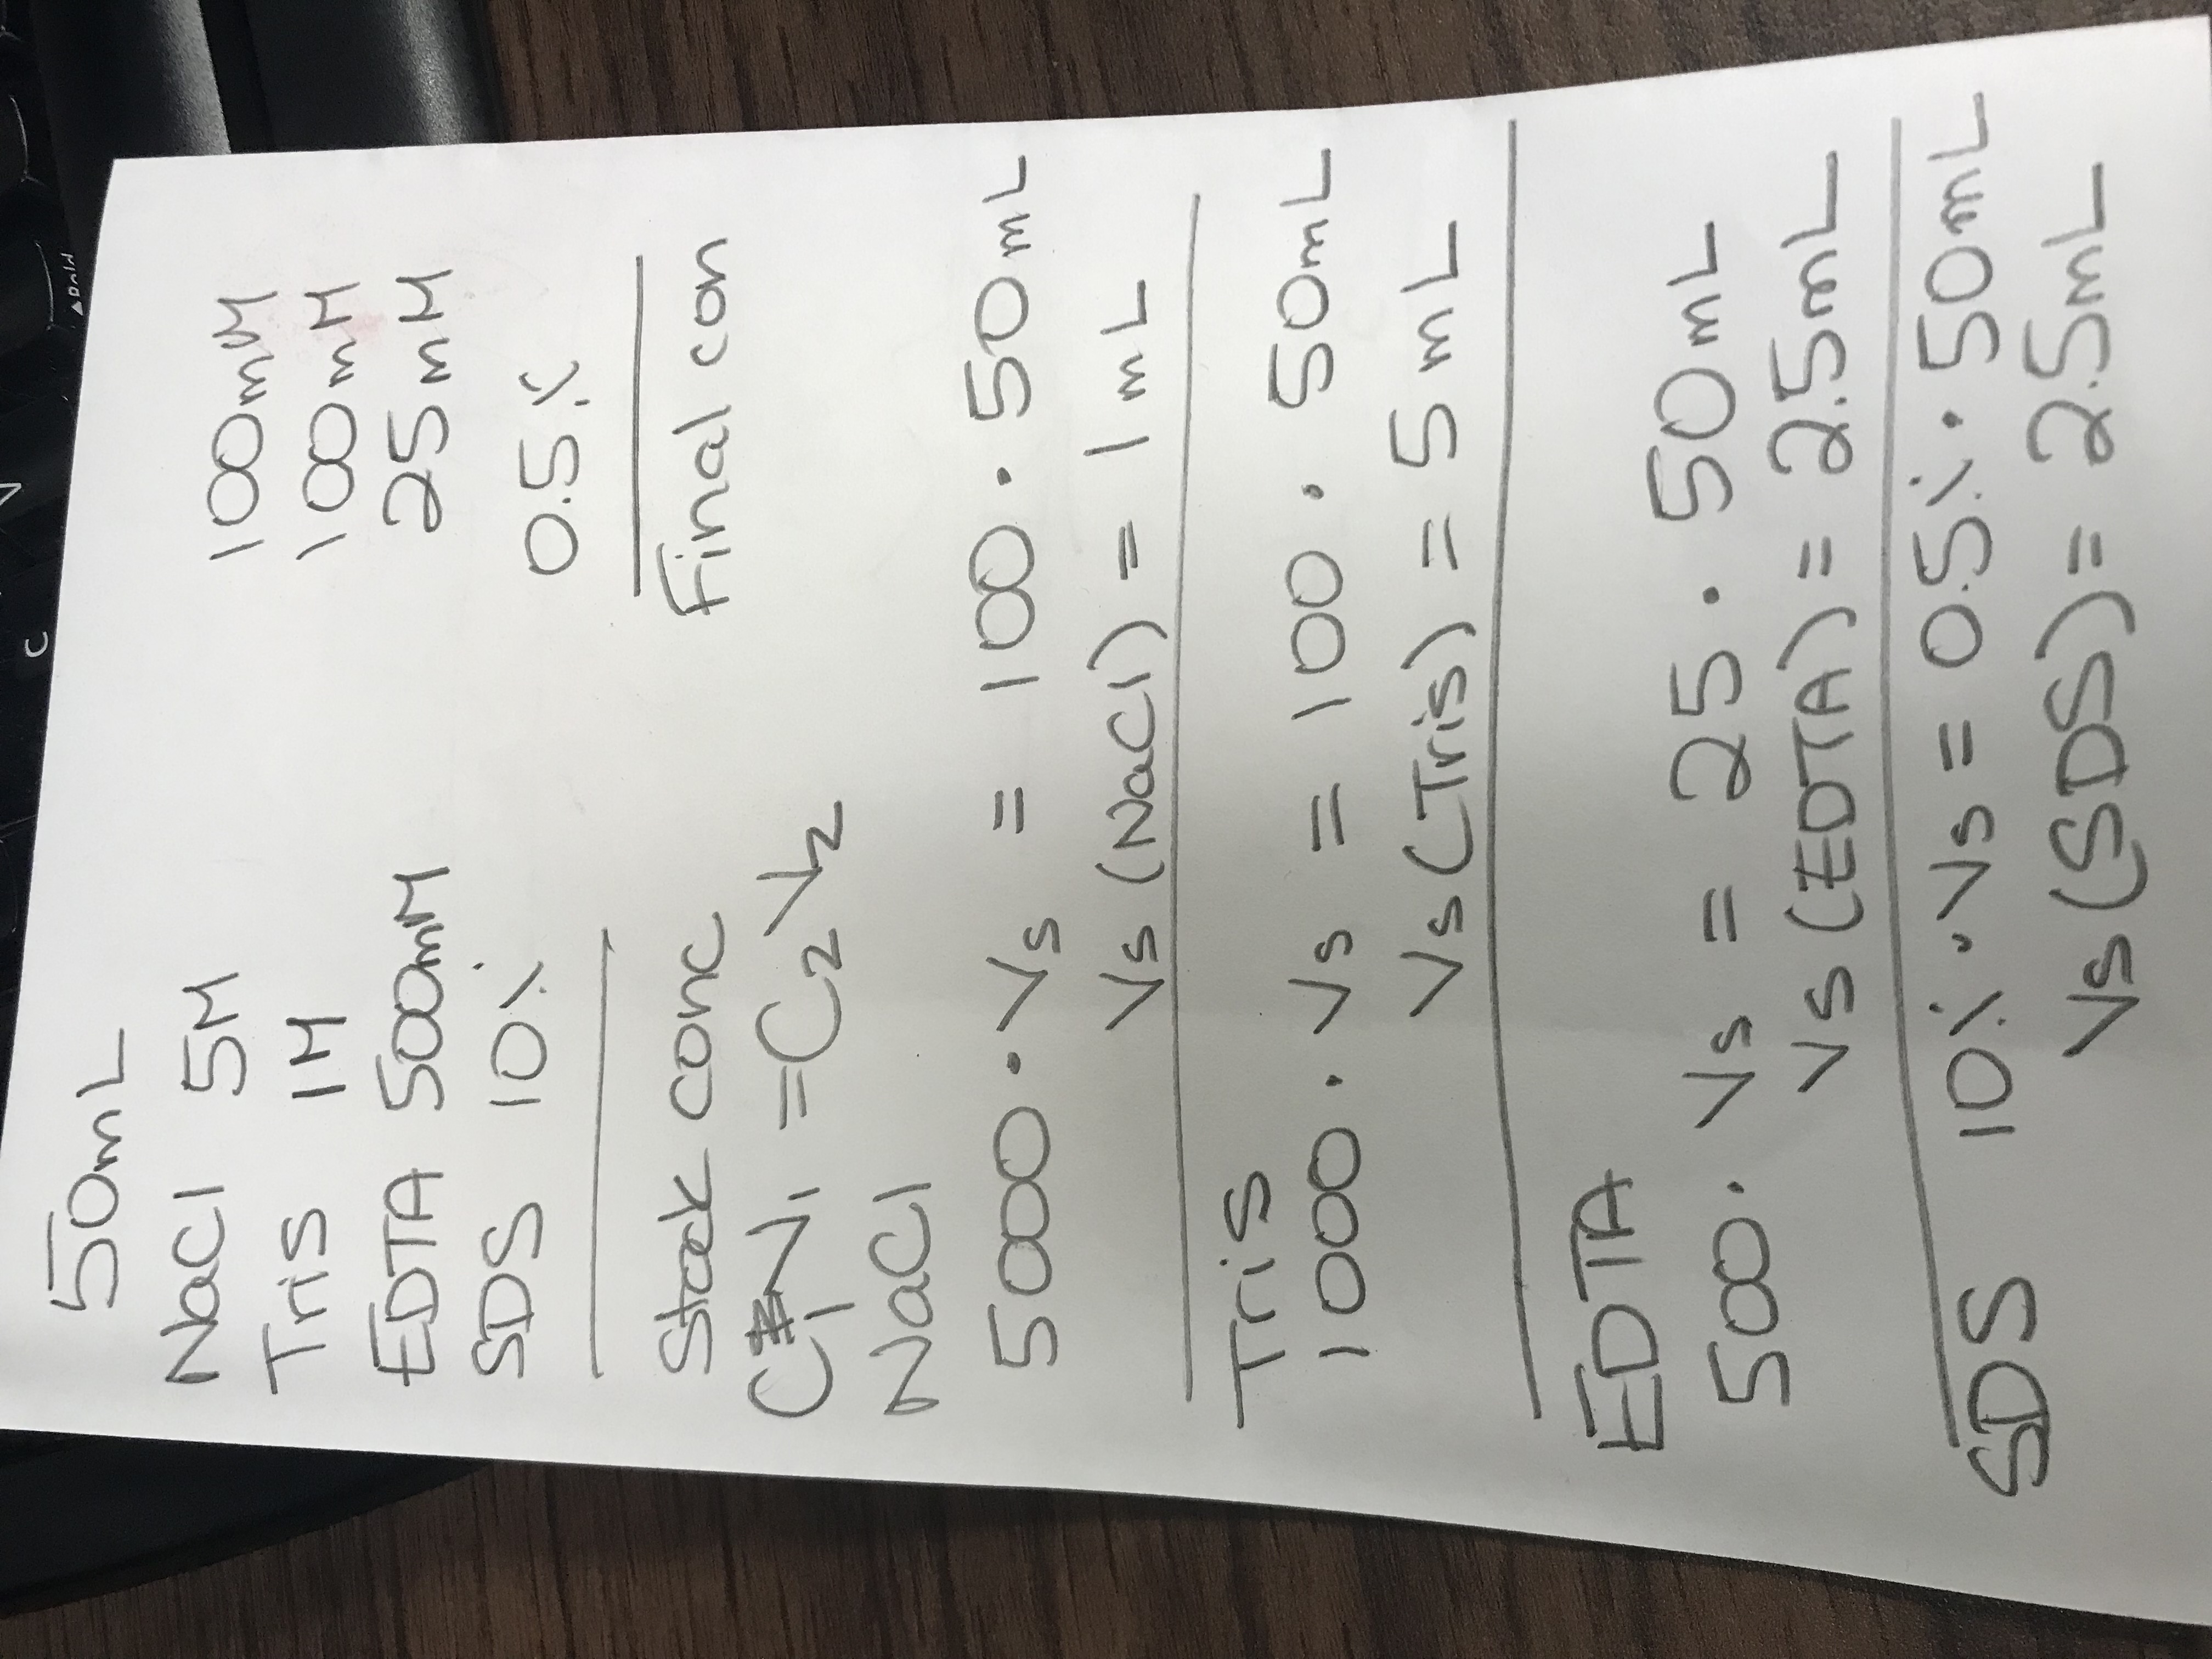 C V
Bold
50mL
NaCl 5M 100mM
Tris 1M 100mM
EDTA 500mM 25mM
SDS 10% 0.5%
Stock conc Final con
C₁V₁ = C₂V₂
NaCl
5000 · Vs = 100 · 50mL
Vs (NaCl) = 1mL
Tris
1000 · Vs = 100 · 50mL
Vs (Tris) = 5mL
EDTA
500 · Vs = 25 · 50mL
Vs (EDTA) = 2.5mL
SDS 10% · Vs = 0.5% · 50mL
Vs (SDS) = 2.5mL